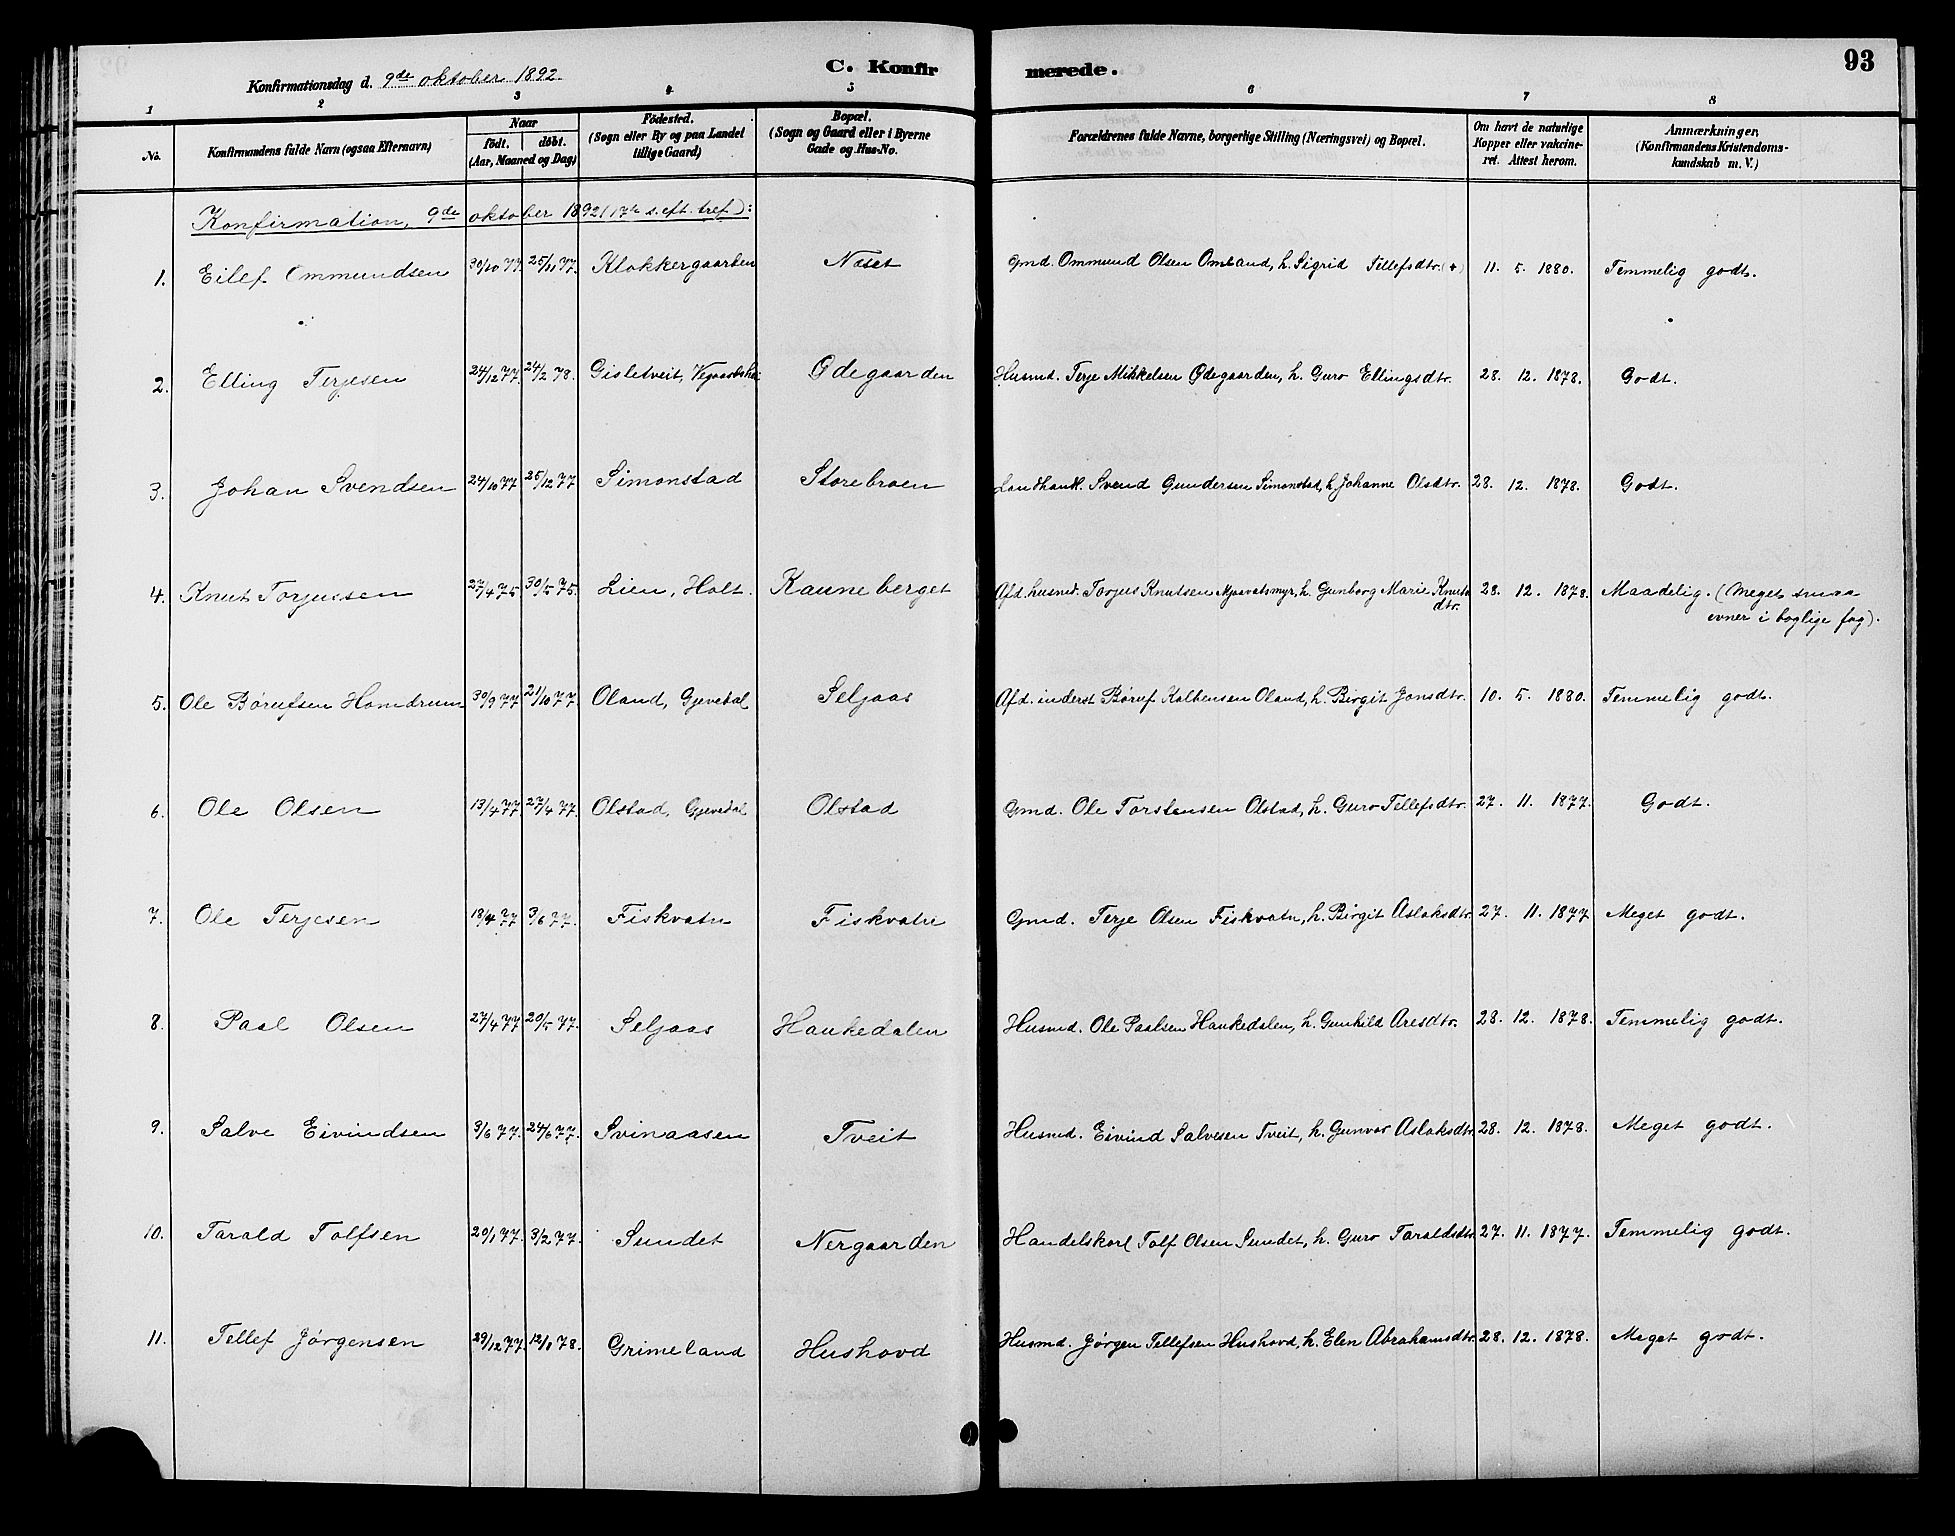 Konfirmationsdag d. 9de oktober 1892.
C. Konfirmerede.
93
1 2 3 4 5 6 7 8
No.
Konfirmandens fulde Navn (ogsaa Efternavn)
Naar
født. døbt.
(Aar, Maaned og Dag)
Fødested.
(Sogn eller By og paa Landet
tillige Gaard)
Bopæl.
(Sogn og Gaard eller i Byerne
Gade og Hus-No.
Forældrenes fulde Navne, borgerlige Stilling (Næringsvei) og Bopæl.
Om havt de naturlige
Kopper eller vakcine-
ret. Attest herom.
Anmærkninger,
(Konfirmandens Kristendoms-
kundskab m. V.)
Konfirmation, 9de oktober 1892 (17de s. eft. tref.):
1. Eilef Ommundsen 30/10 77. 25/11 77. Klokkergaarden Næset Gmd. Ommund Olsen Omland, h. Sigrid Tellefsdtr. (+) 11. 5. 1880. Temmelig godt.
2. Elling Terjesen 24/12 77. 24/2 78. Gisletveit, Vegaardshei Ødegaarden Husmd. Terje Mikkelsen Ødegaarden, h. Guro Ellingsdtr. 28. 12. 1878. Godt.
3. Johan Svendsen 24/10 77 25/12 77 Simonstad Storebroen Landhandl. Svend Gundersen Simonstad, h. Johanne Olsdtr. 28. 12. 1878. Godt.
4. Knut Torjussen 27/4 75 30/5 75. Lien, Holt. Rauneberget Afd. husmd. Torjus Knutsen Mjaavatsmyr, h. Gunborg Marie Knuts
dtr. 28. 12. 1878. Maadelig. (Meget smaa
evner i boglige fag).
5. Ole Børufsen Homdrum 30/9 77 21/10 77. Oland, Gjevedal Seljaas Afd. inderst Børuf Kalbensen Oland, h. Birgit Jonsdtr. 10. 5. 1880. Temmelig godt.
6. Ole Olsen 13/4 77. 27/4 77. Olstad, Gjevedal Olstad Gmd. Ole Torstensen Olstad, h. Guro Tellefsdtr. 27. 11. 1877. Godt.
7. Ole Terjesen 18/4 77 3/6 77. Fiskvatn Fiskvatn Gmd. Terje Olsen Fiskvatn, h. Birgit Aslaksdtr. 27. 11. 1877 Meget godt.
8. Paal Olsen 27/4 77 20/5 77. Seljaas Haukedalen Husmd. Ole Paalsen Haukedalen, h. Gunhild Aresdtr. 28. 12. 1878. Temmelig godt.
9. Salve Eivindsen 3/6 77. 24/6 77. Svinaasen Tveit Husmd. Eivind Salvesen Tveit, h. Gunvor Aslaksdtr. 28. 12. 1878. Meget godt.
10. Tarald Tolfsen 20/1 77. 3/2 77. Sundet Nergaarden Handelskarl Tolf Olsen Sundet, h. Guro Taraldsdtr. 27. 11. 1877. Temmelig godt.
11. Tellef Jørgensen 29/12 77. 12/1 78. Grimeland Hushovd Husmd. Jørgen Tellefsen Hushovd, h. Elen Abrahamsdtr. 28. 12. 1878. Meget godt.